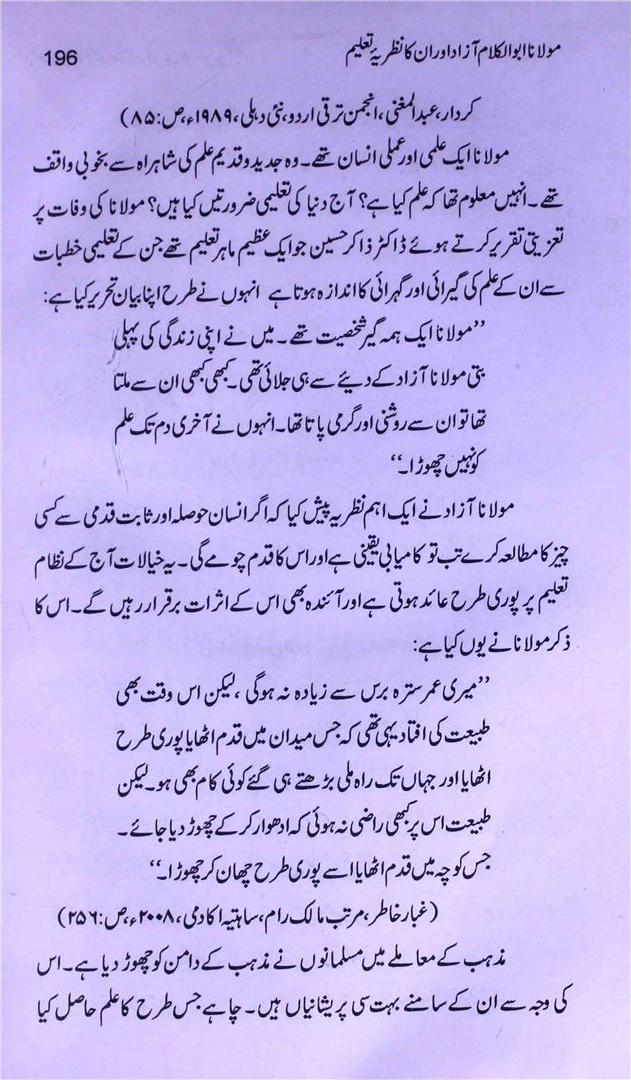 مولانا ابوالکلام آزاد اور ان کا نظریۂ تعلیم
196
کردار، عبدالمغنی، انجمن ترقی اردو، نئی دہلی، ۱۹۸۹ء، ص: ۸۵)
مولانا ایک علمی اور عملی انسان تھے۔ وہ جدید و قدیم علم کی شاہراہ سے بخوبی واقف
تھے۔ انہیں معلوم تھا کہ علم کیا ہے؟ آج دنیا کی تعلیمی ضرورتیں کیا ہیں؟ مولانا کی وفات پر
تعزیتی تقریر کرتے ہوئے ڈاکٹر ذاکر حسین جو ایک عظیم ماہر تعلیم تھے جن کے تعلیمی خطبات
سے ان کے علم کی گیرائی اور گہرائی کا اندازہ ہوتا ہے انہوں نے طرح اپنا بیان تحریر کیا ہے:
”مولانا ایک ہمہ گیر شخصیت تھے۔ میں نے اپنی زندگی کی پہلی
بتی مولانا آزاد کے دیئے سے ہی جلائی تھی۔ کبھی کبھی ان سے ملتا
تھا تو ان سے روشنی اور گرمی پاتا تھا۔ انہوں نے آخری دم تک علم
کو نہیں چھوڑا۔“
مولانا آزاد نے ایک اہم نظریہ پیش کیا کہ اگر انسان حوصلہ اور ثابت قدمی سے کسی
چیز کا مطالعہ کرے تب تو کامیابی یقینی ہے اور اس کا قدم چومے گی۔ یہ خیالات آج کے نظام
تعلیم پر پوری طرح عائد ہوتی ہے اور آئندہ بھی اس کے اثرات برقرار رہیں گے۔ اس کا
ذکر مولانا نے یوں کیا ہے:
”میری عمر سترہ برس سے زیادہ نہ ہوگی، لیکن اس وقت بھی
طبیعت کی افتاد یہی تھی کہ جس میدان میں قدم اٹھایا پوری طرح
اٹھایا اور جہاں تک راہ ملی بڑھتے ہی گئے کوئی کام بھی ہو۔ لیکن
طبیعت اس پر کبھی راضی نہ ہوئی کہ ادھوار کر کے چھوڑ دیا جائے۔
جس کوچہ میں قدم اٹھایا اسے پوری طرح چھان کر چھوڑا۔“
(غبار خاطر، مرتب مالک رام، ساہتیہ اکادمی، ۲۰۰۸ء، ص: ۲۵۶)
مذہب کے معاملے میں مسلمانوں نے مذہب کے دامن کو چھوڑ دیا ہے۔ اس
کی وجہ سے ان کے سامنے بہت سی پریشانیاں ہیں۔ چاہے جس طرح کا علم حاصل کیا